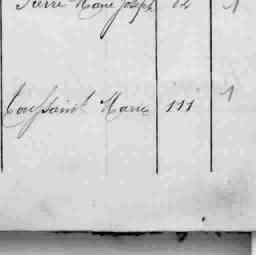 Pierre Marie Joseph 82 1
Toussaint Marie 111 1